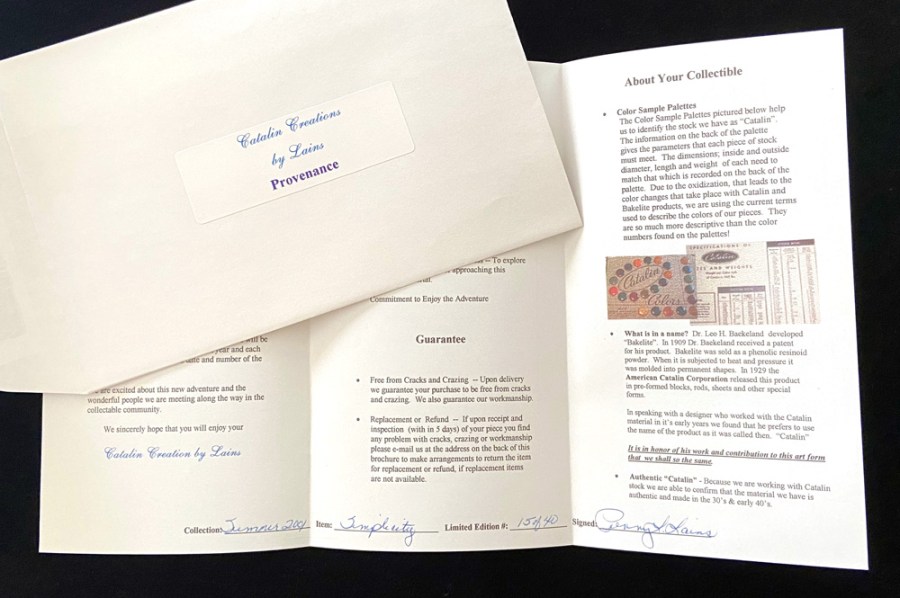 Catalin Creations
by Lains
Provenance
will be
year and each
and number of the
We are excited about this new adventure and the
wonderful people we are meeting along the way in the
collectable community.
We sincerely hope that you will enjoy your
Catalin Creation by Lains
Collection:
To explore
approaching this
Commitment to Enjoy the Adventure
Guarantee
• Free from Cracks and Crazing -- Upon delivery
we guarantee your purchase to be free from cracks
and crazing. We also guarantee our workmanship.
• Replacement or Refund -- If upon receipt and
inspection (with in 5 days) of your piece you find
any problem with cracks, crazing or workmanship
please e-mail us at the address on the back of this
brochure to make arrangements to return the item
for replacement or refund, if replacement items
are not available.
Item: Simplicity Limited Edition #: 15 of 40
About Your Collectible
• Color Sample Palettes
The Color Sample Palettes pictured below help
us to identify the stock we have as "Catalin".
The information on the back of the palette
gives the parameters that each piece of stock
must meet. The dimensions; inside and outside
diameter, length and weight of each need to
match that which is recorded on the back of the
palette. Due to the oxidization, that leads to the
color changes that take place with Catalin and
Bakelite products, we are using the current terms
used to describe the colors of our pieces. They
are so much more descriptive than the color
numbers found on the palettes!
Catalin
Colors
SPECIFICATIONS OF
Catalin
AND WEIGHTS
• What is in a name? Dr. Leo H. Baekeland developed
"Bakelite". In 1909 Dr. Baekeland received a patent
for his product. Bakelite was sold as a phenolic resinoid
powder. When it is subjected to heat and pressure it
was molded into permanent shapes. In 1929 the
American Catalin Corporation released this product
in pre-formed blocks, rods, sheets and other special
forms.
In speaking with a designer who worked with the Catalin
material in it's early years we found that he prefers to use
the name of the product as it was called then. "Catalin"
It is in honor of his work and contribution to this art form
that we shall so the same.
• Authentic "Catalin" - Because we are working with Catalin
stock we are able to confirm that the material we have is
authentic and made in the 30's & early 40's.
Signed: Penny L Lains